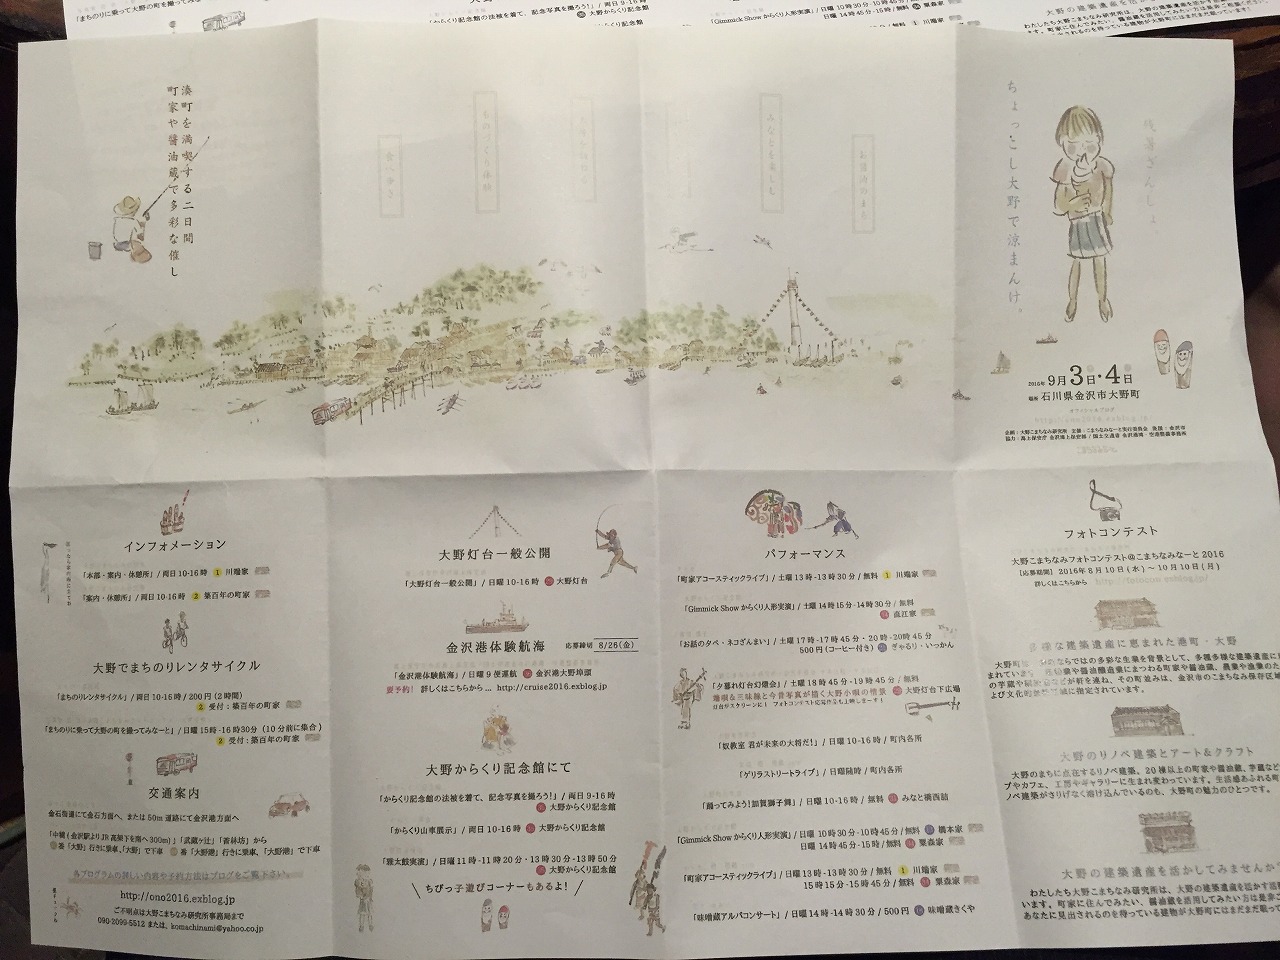 湊町を満喫する二日間
町家や醬油蔵で多彩な催し
ちょっこし大野で涼まんけ。
2016年 9月3日・4日
場所 石川県金沢市大野町
インフォメーション
「本部・案内・休憩所」/ 両日 10-16時 1 川端家
「案内・休憩所」/ 両日 10-16時 2 築百年の町家
大野でまちのりレンタサイクル
「まちのりレンタサイクル」/ 両日 10-16時 / 200円 (2時間)
2 受付：築百年の町家
「まちのりに乗って大野の町を撮ってみなーと」/ 日曜 15時-16時30分 (10分前に集合)
2 受付：築百年の町家
交通案内
金石街道にて金石方面へ、または50m道路にて金沢港方面へ
「中橋 (金沢駅よりJR高架下を南へ300m)」「武蔵ヶ辻」「香林坊」から
番「大野」行きに乗車、「大野」で下車 番「大野港」行きに乗車、「大野港」で下車
各プログラムの詳しい内容や予約方法はブログをご覧下さい。
http://ono2016.exblog.jp
ご不明点は大野こまちなみ研究所事務局まで
090-2099-5512 または、komachinami@yahoo.co.jp
大野灯台一般公開
「大野灯台一般公開」/ 日曜 10-16時 大野灯台
金沢港体験航海 応募締切 8/26(金)
「金沢港体験航海」/ 日曜 9便運航 金沢港大野埠頭
要予約！ 詳しくはこちらから… http://cruise2016.exblog.jp
大野からくり記念館にて
「からくり記念館の法被を着て、記念写真を撮ろう！」/ 両日 9-16時
大野からくり記念館
「からくり山車展示」/ 両日 10-16時 大野からくり記念館
「雅太鼓実演」/ 日曜 11時-11時20分・13時30分-13時50分
大野からくり記念館
ちびっ子遊びコーナーもあるよ！
パフォーマンス
「町家アコースティックライブ」/ 土曜 13時-13時30分 / 無料 1 川端家
「Gimmick Show からくり人形実演」/ 土曜 14時15分-14時30分 / 無料
直江家
「お話の夕べ・ネコざんまい」/ 土曜 17時-17時45分・20時-20時45分
500円 (コーヒー付き) ぎゃるり・いっかん
「夕暮れ灯台幻燈会」/ 土曜 18時45分-19時45分 / 無料
端唄&三味線と今昔写真が描く大野小唄の情景 大野灯台下広場
「奴教室 君が未来の大将だ！」/ 日曜 10-16時 / 町内各所
「ゲリラストリートライブ」/ 日曜随時 / 町内各所
「踊ってみよう！加賀獅子舞」/ 日曜 10-16時 / 無料 みなと橋西詰
「Gimmick Show からくり人形実演」/ 日曜 10時30分-10時45分 / 無料 橋本家
日曜 14時45分-15時 / 無料 粟森家
「町家アコースティックライブ」/ 日曜 13時-13時30分 / 無料 1 川端家
15時15分-15時45分 / 無料 粟森家
「味噌蔵アルパコンサート」/ 日曜 14時-14時30分 / 500円 味噌蔵きくや
フォトコンテスト
大野こまちなみフォトコンテスト@こまちなみなーと2016
［応募期間］2016年8月10日(水)～10月10日(月)
詳しくはこちらから
多様な建築遺産に恵まれた港町・大野
大野のリノベ建築とアート&クラフト
大野のまちに点在するリノベ建築。20棟以上の町家や醬油蔵、
プやカフェ、工房やギャラリーに生まれ変わっています。生活感あふれる町
ノベ建築がさりげなく溶け込んでいるのも、大野町の魅力のひとつです。
大野の建築遺産を活かしてみませんか
わたしたち大野こまちなみ研究所は、大野の建築遺産を活かす活
ます。町家に住んでみたい、醤油蔵を活用してみたい方は是非ご
あなたに見出されるのを待っている建物が大野町にはまだまだ眠って